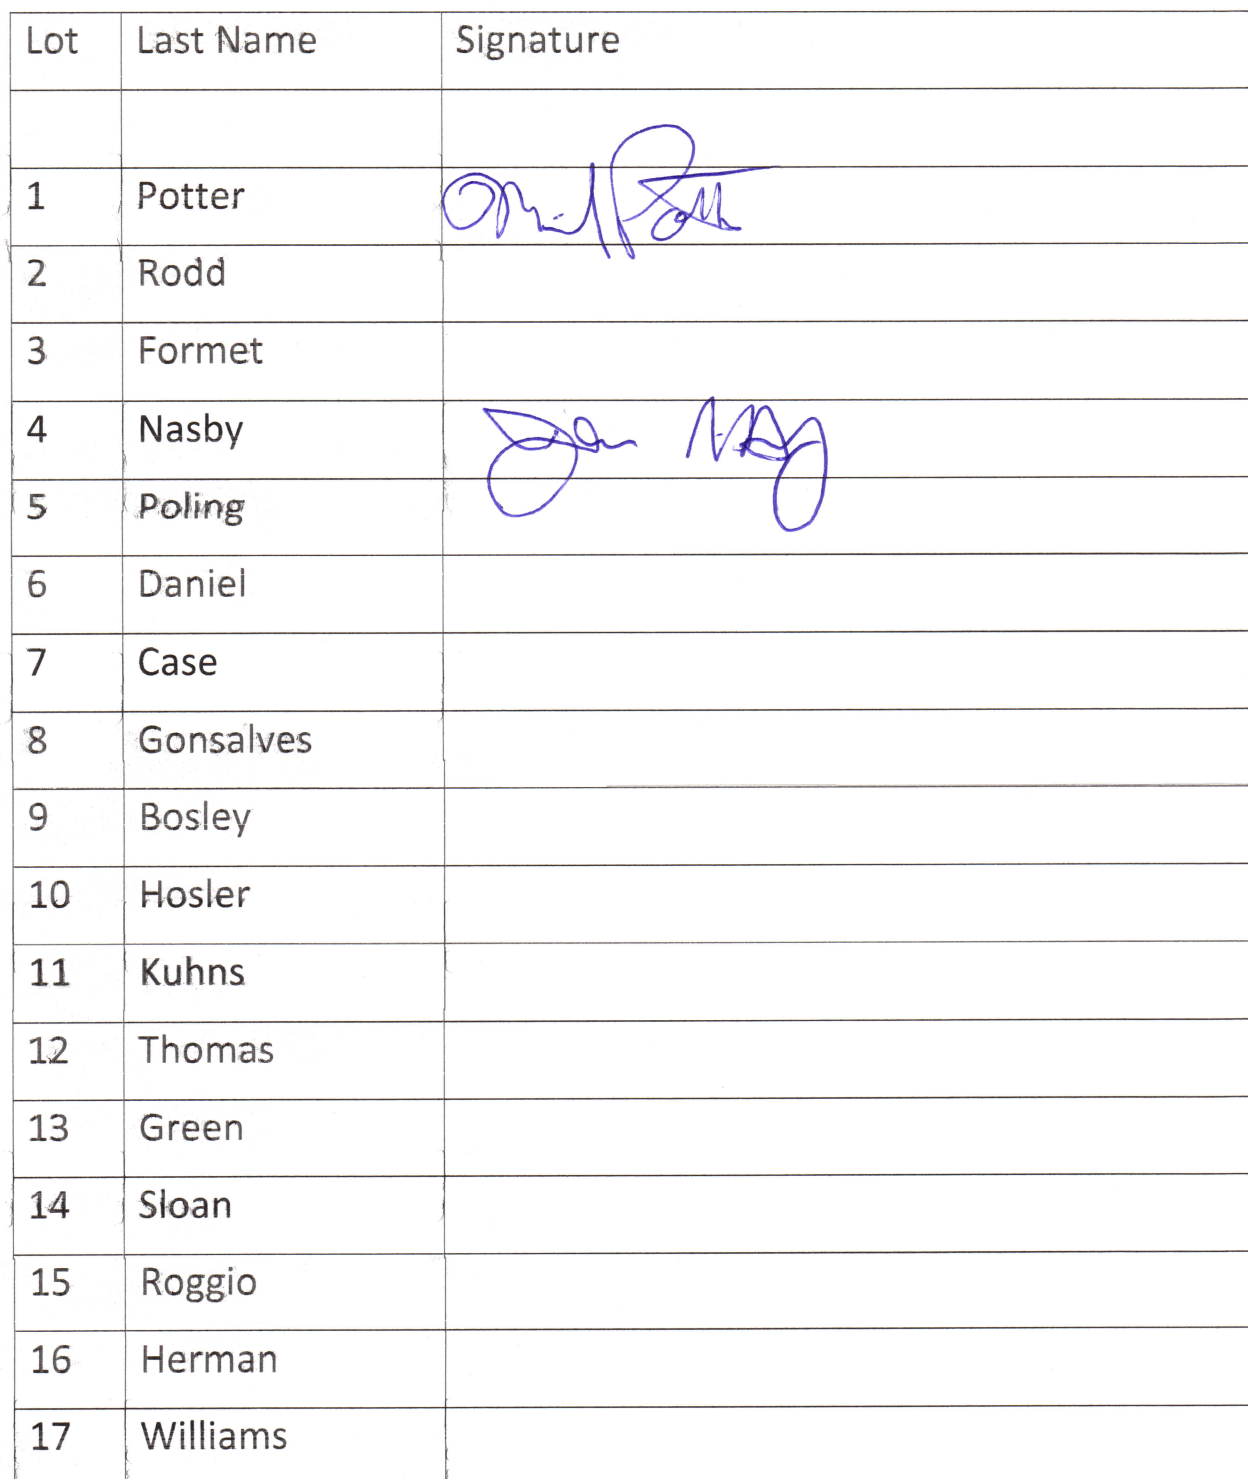 Lot Last Name Signature
1 Potter
2 Rodd
3 Formet
4 Nasby
5 Poling
6 Daniel
7 Case
8 Gonsalves
9 Bosley
10 Hosler
11 Kuhns
12 Thomas
13 Green
14 Sloan
15 Roggio
16 Herman
17 Williams